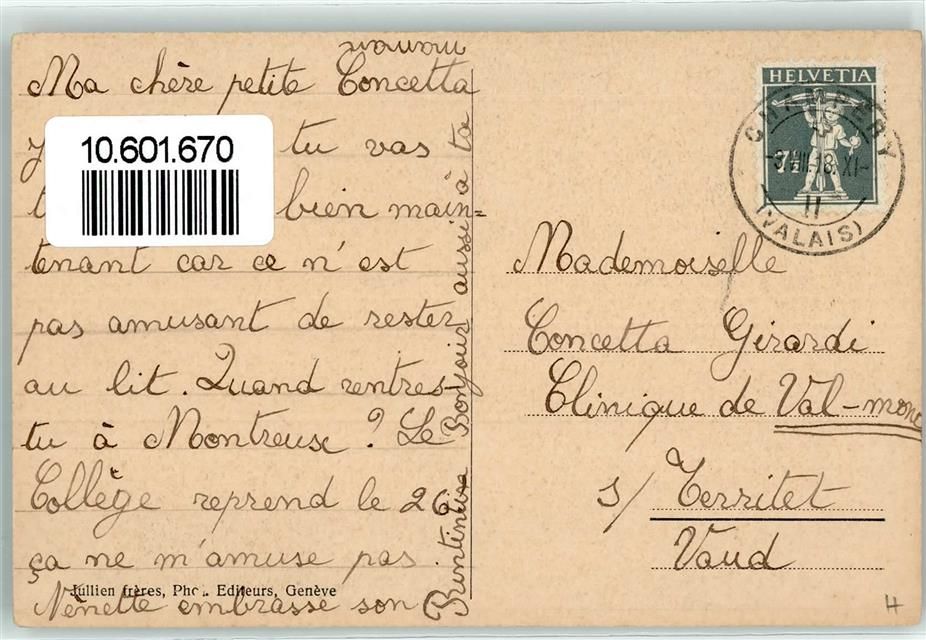 Ma chère petite Concetta
tu vas
bien main=
tenant car ce n'est
pas amusant de rester
au lit. Quand rentres
tu à Montreuse ? Le
Collège reprend le 26
ça ne m'amuse pas.
Nénette embrasse son
Bonjour aussi à ta
maman
10.601.670
Jullien frères, Phot. Editeurs, Genève
HELVETIA
7½
CHAMPÉRY
(VALAIS)
Mademoiselle
Concetta Girardi
Clinique de Val-mont
s/ Territet
Vaud
H